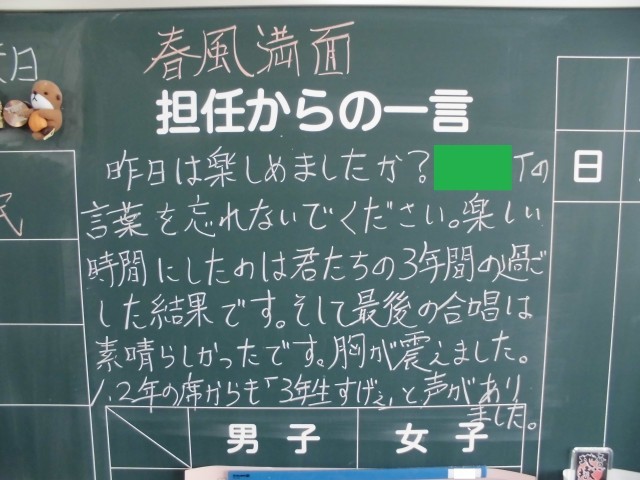 春風満面
担任からの一言
昨日は楽しめましたか？ Tの
言葉を忘れないでください。楽しい
時間にしたのは君たちの3年間の過ご
した結果です。そして最後の合唱は
素晴らしかったです。胸が震えました。
1.2年の席からも「3年生すげぇ」と声があり
ました。
男子 女子
日
日